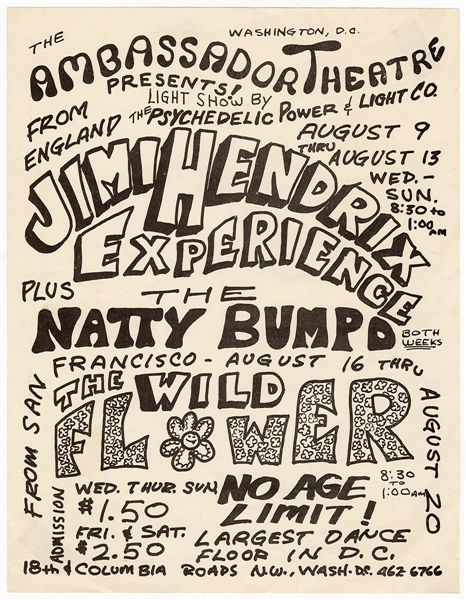 THE
WASHINGTON, D.C.
AMBASSADOR THEATRE
PRESENTS!
LIGHT SHOW BY
THE PSYCHEDELIC POWER & LIGHT CO.
FROM
ENGLAND
AUGUST 9
THRU
AUGUST 13
WED. -
SUN.
8:30 to
1:00 AM
JIMI HENDRIX
EXPERIENCE
PLUS
THE
NATTY BUMPO
BOTH
WEEKS
FROM SAN
FRANCISCO - AUGUST 16 THRU
AUGUST 20
THE WILD
FLOWER
8:30
TO
1:00 AM
ADMISSION
WED. THUR. SUN.
$1.50
FRI. & SAT.
$2.50
NO AGE
LIMIT!
LARGEST DANCE
FLOOR IN D.C.
18th & COLUMBIA ROADS N.W., WASH. DC. 462-6766